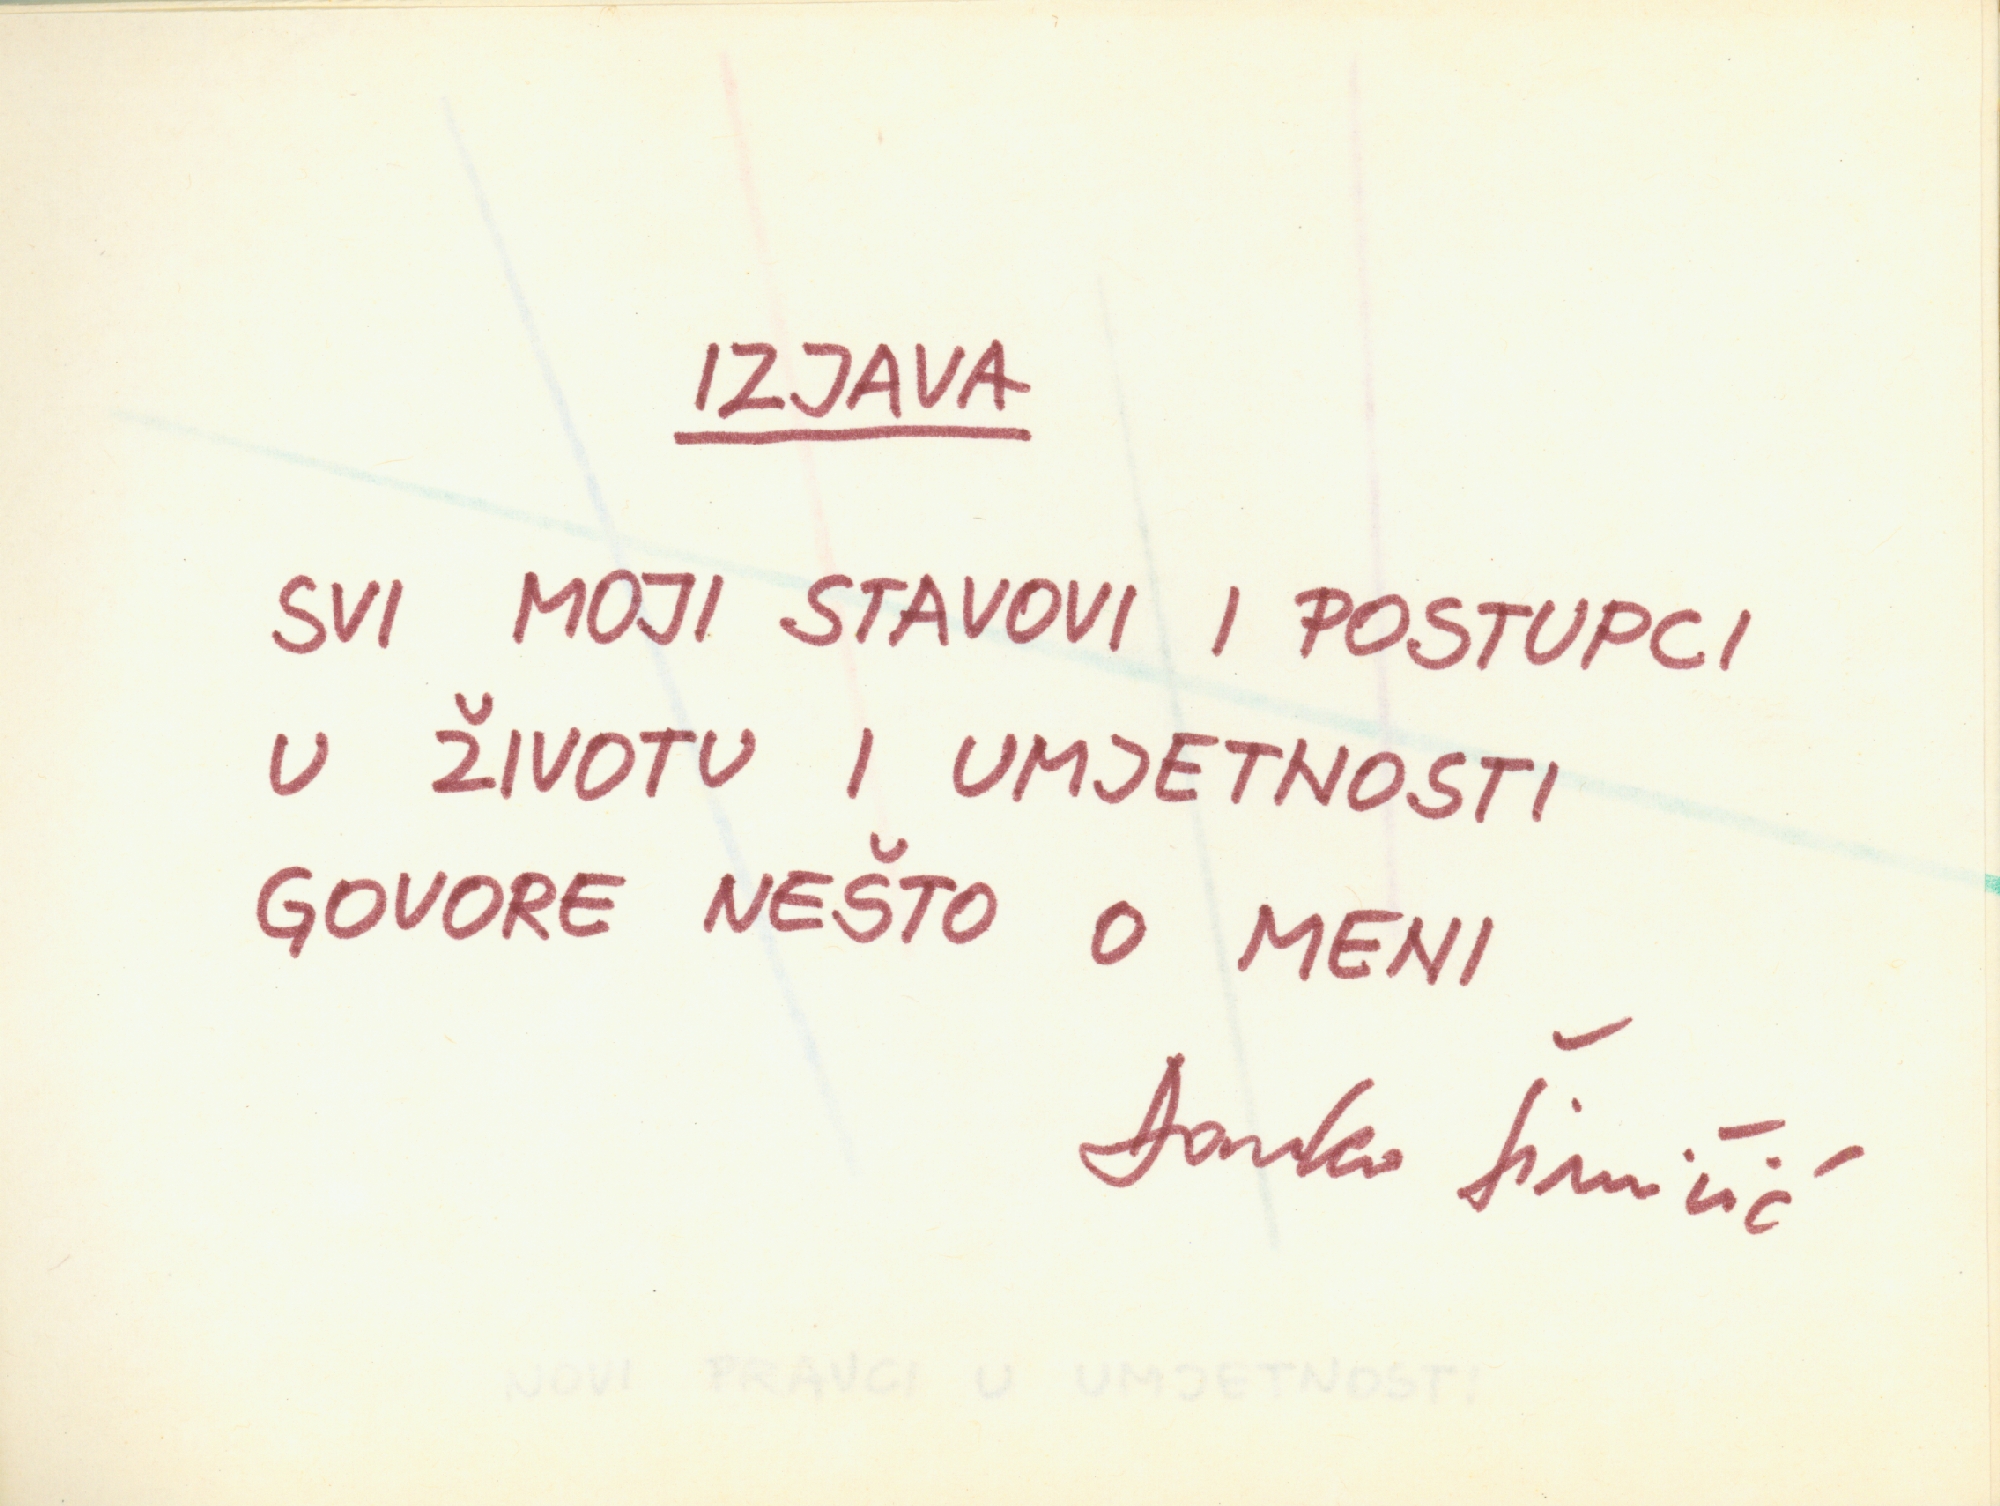 IZJAVA
SVI MOJI STAVOVI I POSTUPCI
U ŽIVOTU I UMJETNOSTI
GOVORE NEŠTO O MENI
NOVI PRAVCI U UMJETNOSTI